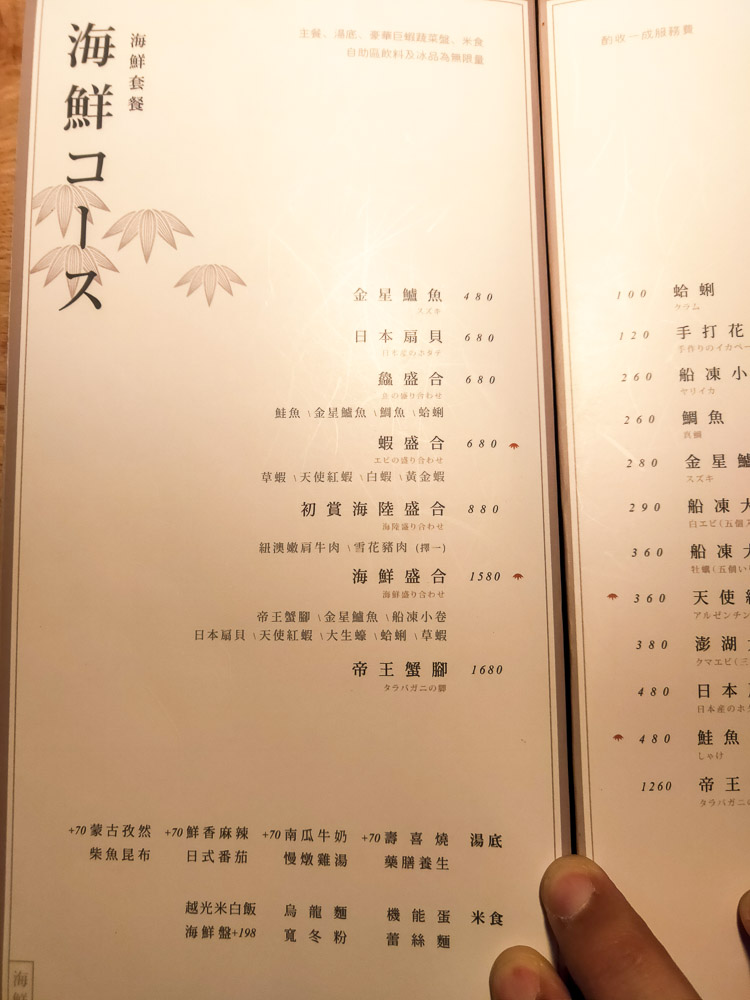 海鮮コース
海鮮套餐
主餐、湯底、豪華巨蝦蔬菜盤、米食
自助區飲料及冰品為無限量
金星鱸魚 480
スズキ
日本扇貝 680
日本産のホタテ
鱻盛合 680
魚の盛り合わせ
鮭魚 \ 金星鱸魚 \ 鯛魚 \ 蛤蜊
蝦盛合 680
エビの盛り合わせ
草蝦 \ 天使紅蝦 \ 白蝦 \ 黃金蝦
初賞海陸盛合 880
海陸盛り合わせ
紐澳嫩肩牛肉 \ 雪花豬肉 (擇一)
海鮮盛合 1580
海鮮盛り合わせ
帝王蟹腳 \ 金星鱸魚 \ 船凍小卷
日本扇貝 \ 天使紅蝦 \ 大生蠔 \ 蛤蜊 \ 草蝦
帝王蟹腳 1680
タラバガニの脚
+70 蒙古孜然 +70 鮮香麻辣 +70 南瓜牛奶 +70 壽喜燒 湯底
柴魚昆布 日式番茄 慢燉雞湯 藥膳養生
越光米白飯 烏龍麵 機能蛋 米食
海鮮盤+198 寬冬粉 蕾絲麵
海鮮
酌收一成服務費
100 蛤蜊
クラム
120 手打花
手作りのイカペー
260 船凍小
ヤリイカ
260 鯛魚
真鯛
280 金星鱸
スズキ
290 船凍大
白エビ(五個
360 船凍大
牡蠣(五個い
360 天使紅
アルゼンチン
380 澎湖
クマエビ(三
480 日本
日本産のホタ
480 鮭魚
しゃけ
1260 帝王
タラバガニ